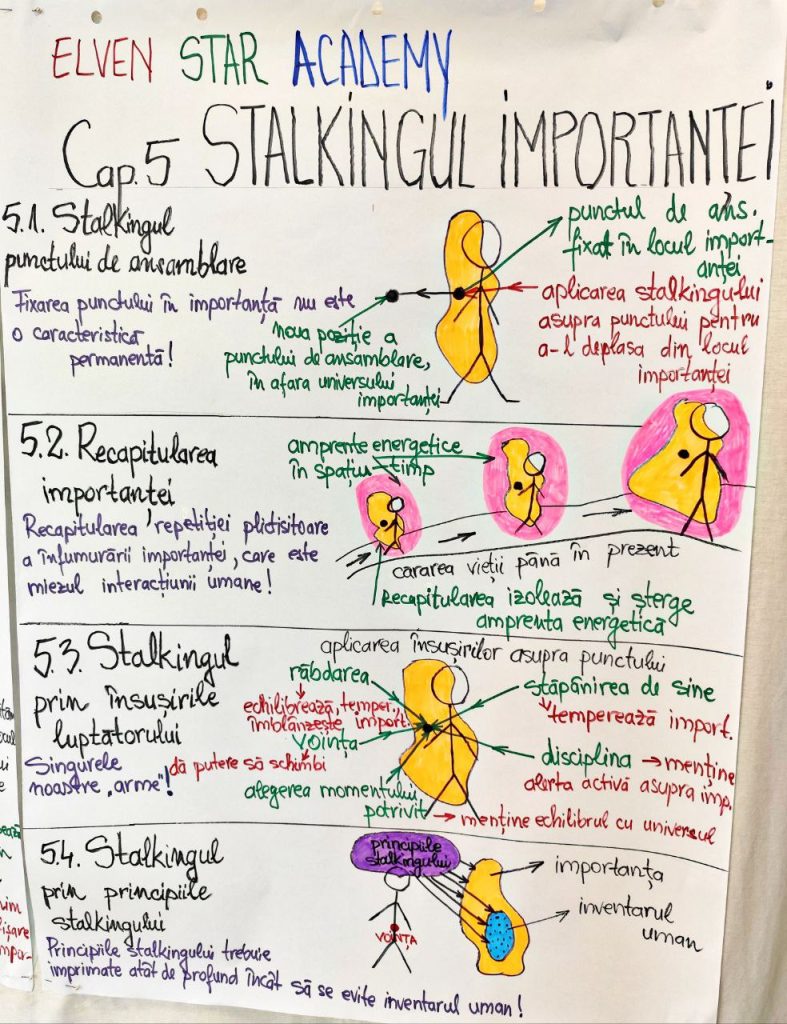 ELVEN STAR ACADEMY
Cap. 5 STALKINGUL IMPORTANTEI
5.1. Stalkingul
punctului de ansamblare
Fixarea punctului în importanță nu este
o caracteristică
permanentă!
noua poziție a
punctului de ansamblare,
în afara universului
importanței
punctul de ans.
fixat în locul import-
anței
aplicarea stalkingului
asupra punctului pentru
a-l deplasa din locul
importanței
5.2. Recapitularea
importanței
Recapitularea repetiției plictisitoare
a înfumurării importanței, care este
miezul interacțiunii umane!
amprente energetice
în spațiu-timp
cararea vieții până în prezent
Recapitularea izolează și șterge
amprenta energetică
5.3. Stalkingul
prin însușirile
luptătorului
Singurele
noastre „arme"!
aplicarea însușirilor asupra punctului
răbdarea
echilibrează, temper.,
îmblânzește import.
voința
dă putere să schimbi
alegerea momentului
potrivit → menține echilibrul cu universul
stăpânirea de sine
temperează import.
disciplina → menține
alerta activă asupra imp.
5.4. Stalkingul
prin principiile
stalkingului
Principiile stalkingului trebuie
imprimate atât de profund încât să se evite inventarul uman!
principiile
stalkingului
VOINȚA
importanța
inventarul
uman